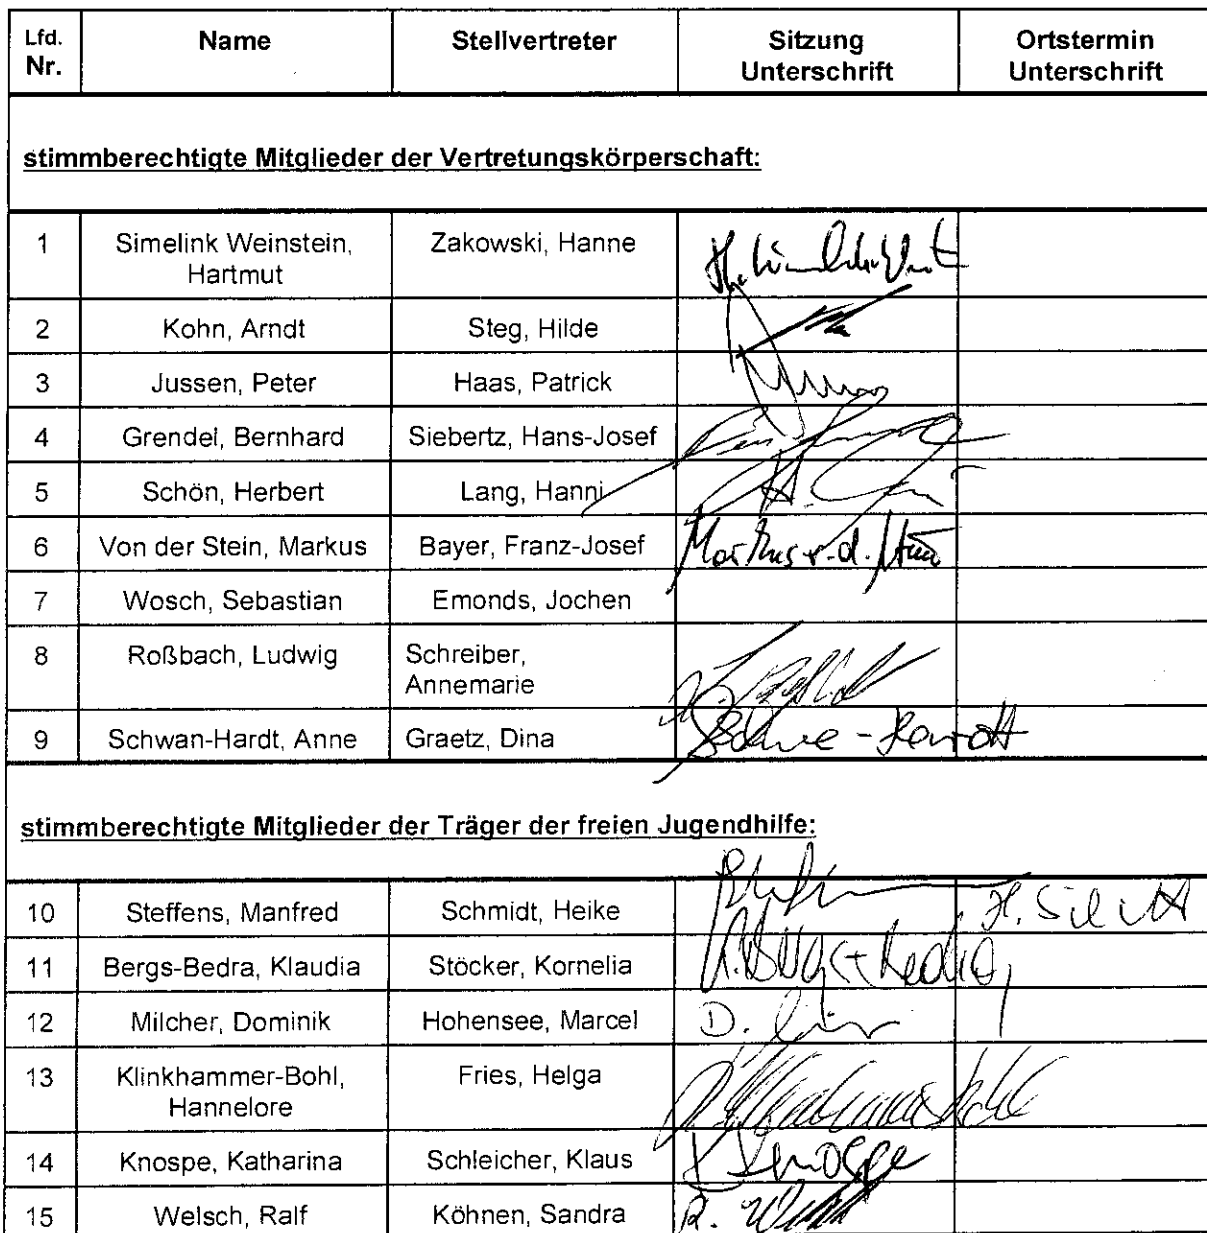 Lfd. Nr. Name Stellvertreter Sitzung Unterschrift Ortstermin Unterschrift
stimmberechtigte Mitglieder der Vertretungskörperschaft:
1 Simelink Weinstein, Hartmut Zakowski, Hanne
2 Kohn, Arndt Steg, Hilde
3 Jussen, Peter Haas, Patrick
4 Grendel, Bernhard Siebertz, Hans-Josef
5 Schön, Herbert Lang, Hanni
6 Von der Stein, Markus Bayer, Franz-Josef Markus v. d. Stein
7 Wosch, Sebastian Emonds, Jochen
8 Roßbach, Ludwig Schreiber, Annemarie
9 Schwan-Hardt, Anne Graetz, Dina
stimmberechtigte Mitglieder der Träger der freien Jugendhilfe:
10 Steffens, Manfred Schmidt, Heike
11 Bergs-Bedra, Klaudia Stöcker, Kornelia
12 Milcher, Dominik Hohensee, Marcel D.
13 Klinkhammer-Bohl, Hannelore Fries, Helga
14 Knospe, Katharina Schleicher, Klaus K. Knospe
15 Welsch, Ralf Köhnen, Sandra R.